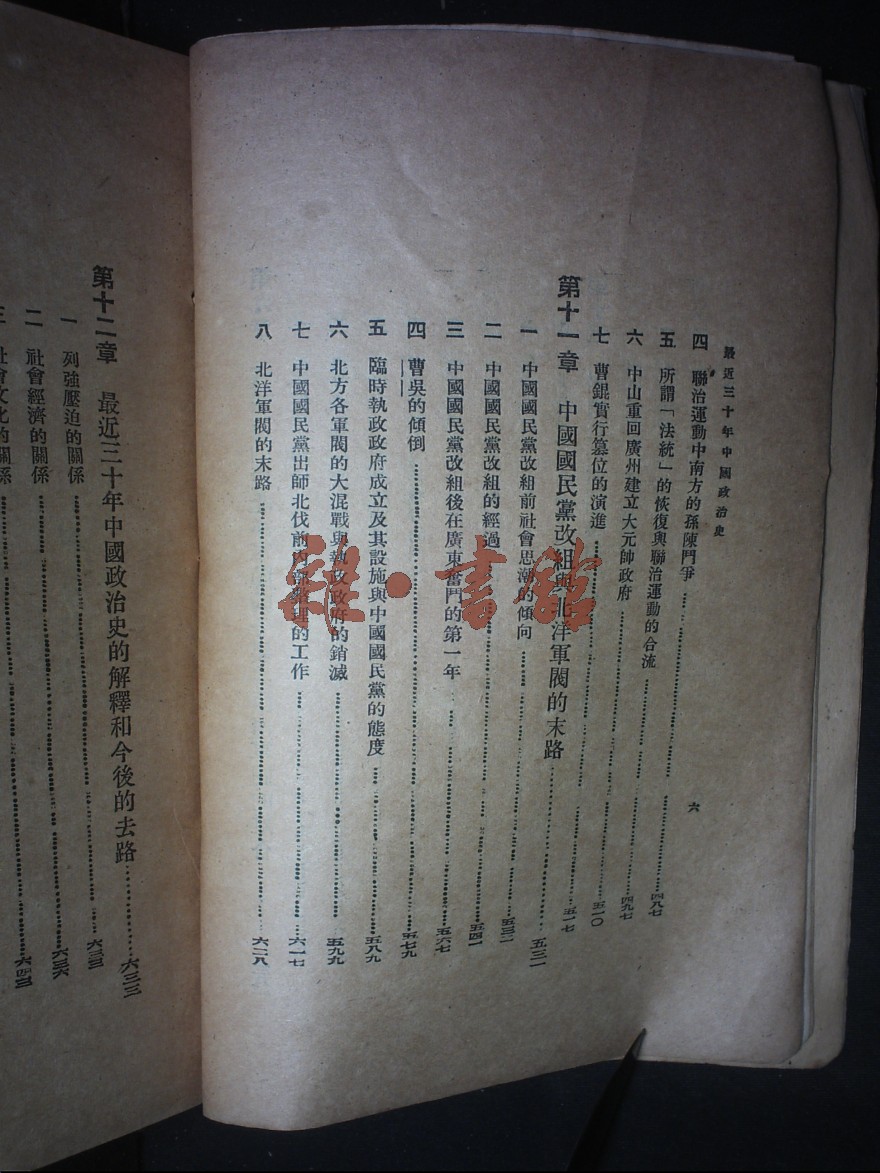 最近三十年中國政治史
六
四 聯治運動中南方的孫陳鬥爭……四八七
五 所謂「法統」的恢復與聯治運動的合流……四九七
六 中山重回廣州建立大元帥政府……五一〇
七 曹錕實行篡位的演進……五一七
第十一章 中國國民黨改組與北洋軍閥的末路……五三一
一 中國國民黨改組前社會思潮的傾向……五三二
二 中國國民黨改組的經過……五四一
三 中國國民黨改組後在廣東奮鬥的第一年……五六七
四 曹吳的傾倒……五七九
五 臨時執政政府成立及其設施與中國國民黨的態度……五八九
六 北方各軍閥的大混戰與執政政府的銷滅……五九九
七 中國國民黨出師北伐前內部整理的工作……六一七
八 北洋軍閥的末路……六二八
第十二章 最近三十年中國政治史的解釋和今後的去路……六三三
一 列強壓迫的關係……六三三
二 社會經濟的關係……六三六
三 社會文化的關係……六四三
雜·書館